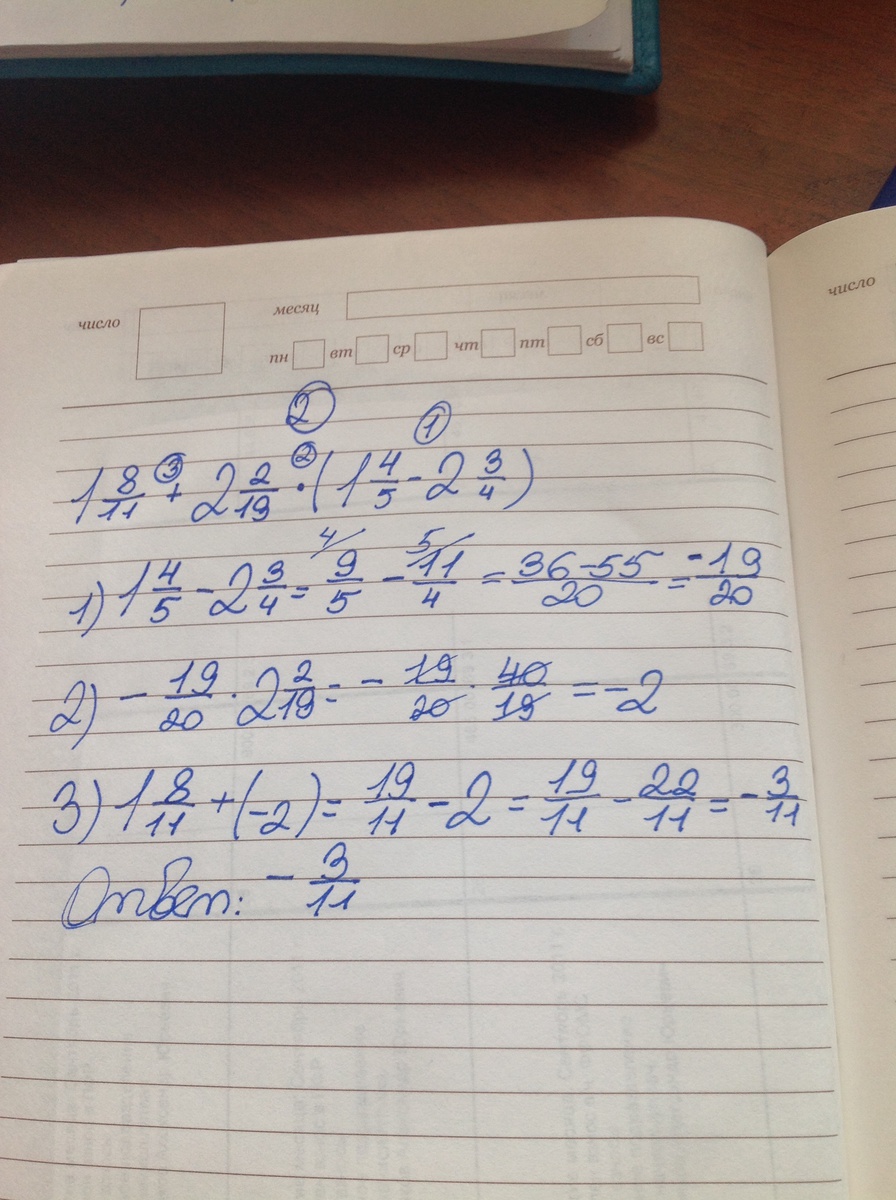 число месяц число
пн вт ср чт пт сб вс
② ①
1 8/11 +③ 2 2/19 ·② (1 4/5 - 2 3/4)
1) 1 4/5 - 2 3/4 = 9/5 (4/ - 11/4 (5/ = 36-55/20 = -19/20
2) - 19/20 · 2 2/19 = - 19/20 · 40/19 = -2
3) 1 8/11 + (-2) = 19/11 - 2 = 19/11 - 22/11 = - 3/11
Ответ: - 3/11